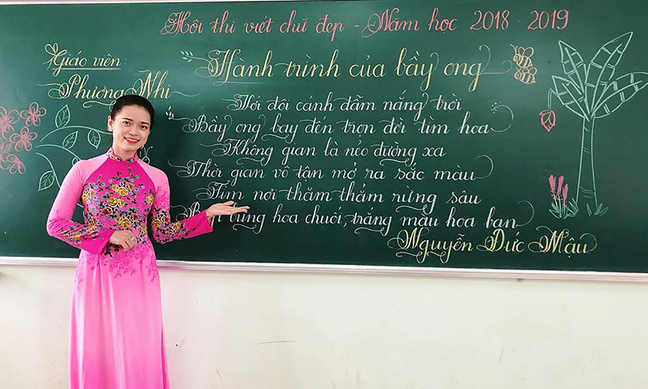 Hội thi viết chữ đẹp - Năm học 2018 - 2019
Giáo viên
Phương Nhi
Hành trình của bầy ong
Với đôi cánh đẫm nắng trời
Bầy ong bay đến trọn đời tìm hoa
Không gian là nẻo đường xa
Thời gian vô tận mở ra sắc màu
Tìm nơi thăm thẳm rừng sâu
rừng hoa chuối, trắng màu hoa ban
Nguyễn Đức Mậu